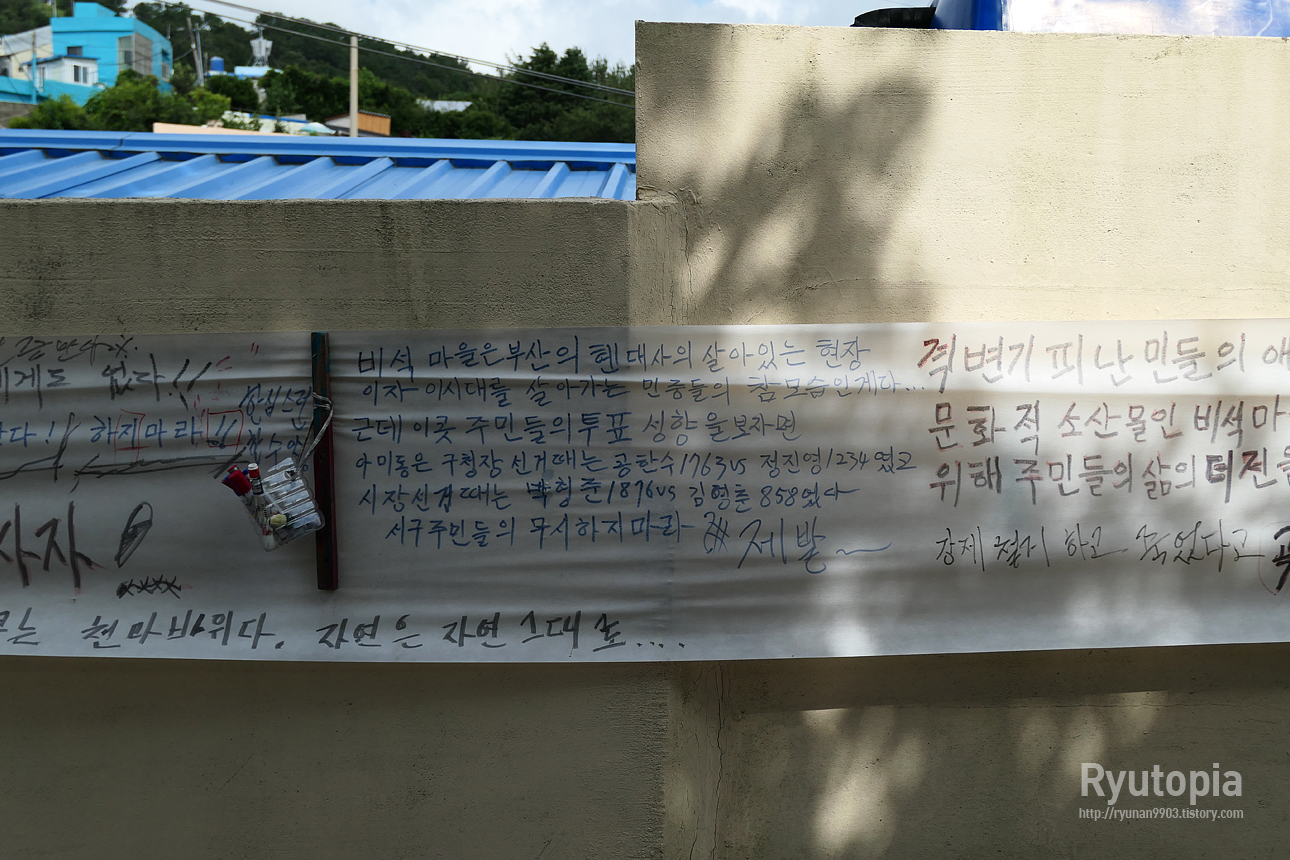 게도 없다!!
하지마라!!
사자
천마바위다. 자연은 자연 그대로....
비석 마을은부산의 현대사의 살아있는 현장
이자 이시대를 살아가는 민중들의 참모습인게다...
근데 이곳 주민들의투표 성향을보자면
아미동은 구청장 선거때는 공한수1763vs 정진영1234였고
시장선거때는 박형준1876vs 김형춘858였다
서구주민들의 무시하지마라 제발~
격변기 피난민들의 애
문화적 소산물인 비석마
위해 주민들의삶의 터전을
강제 철거 하고
Ryutopia
http://ryunan9903.tistory.com